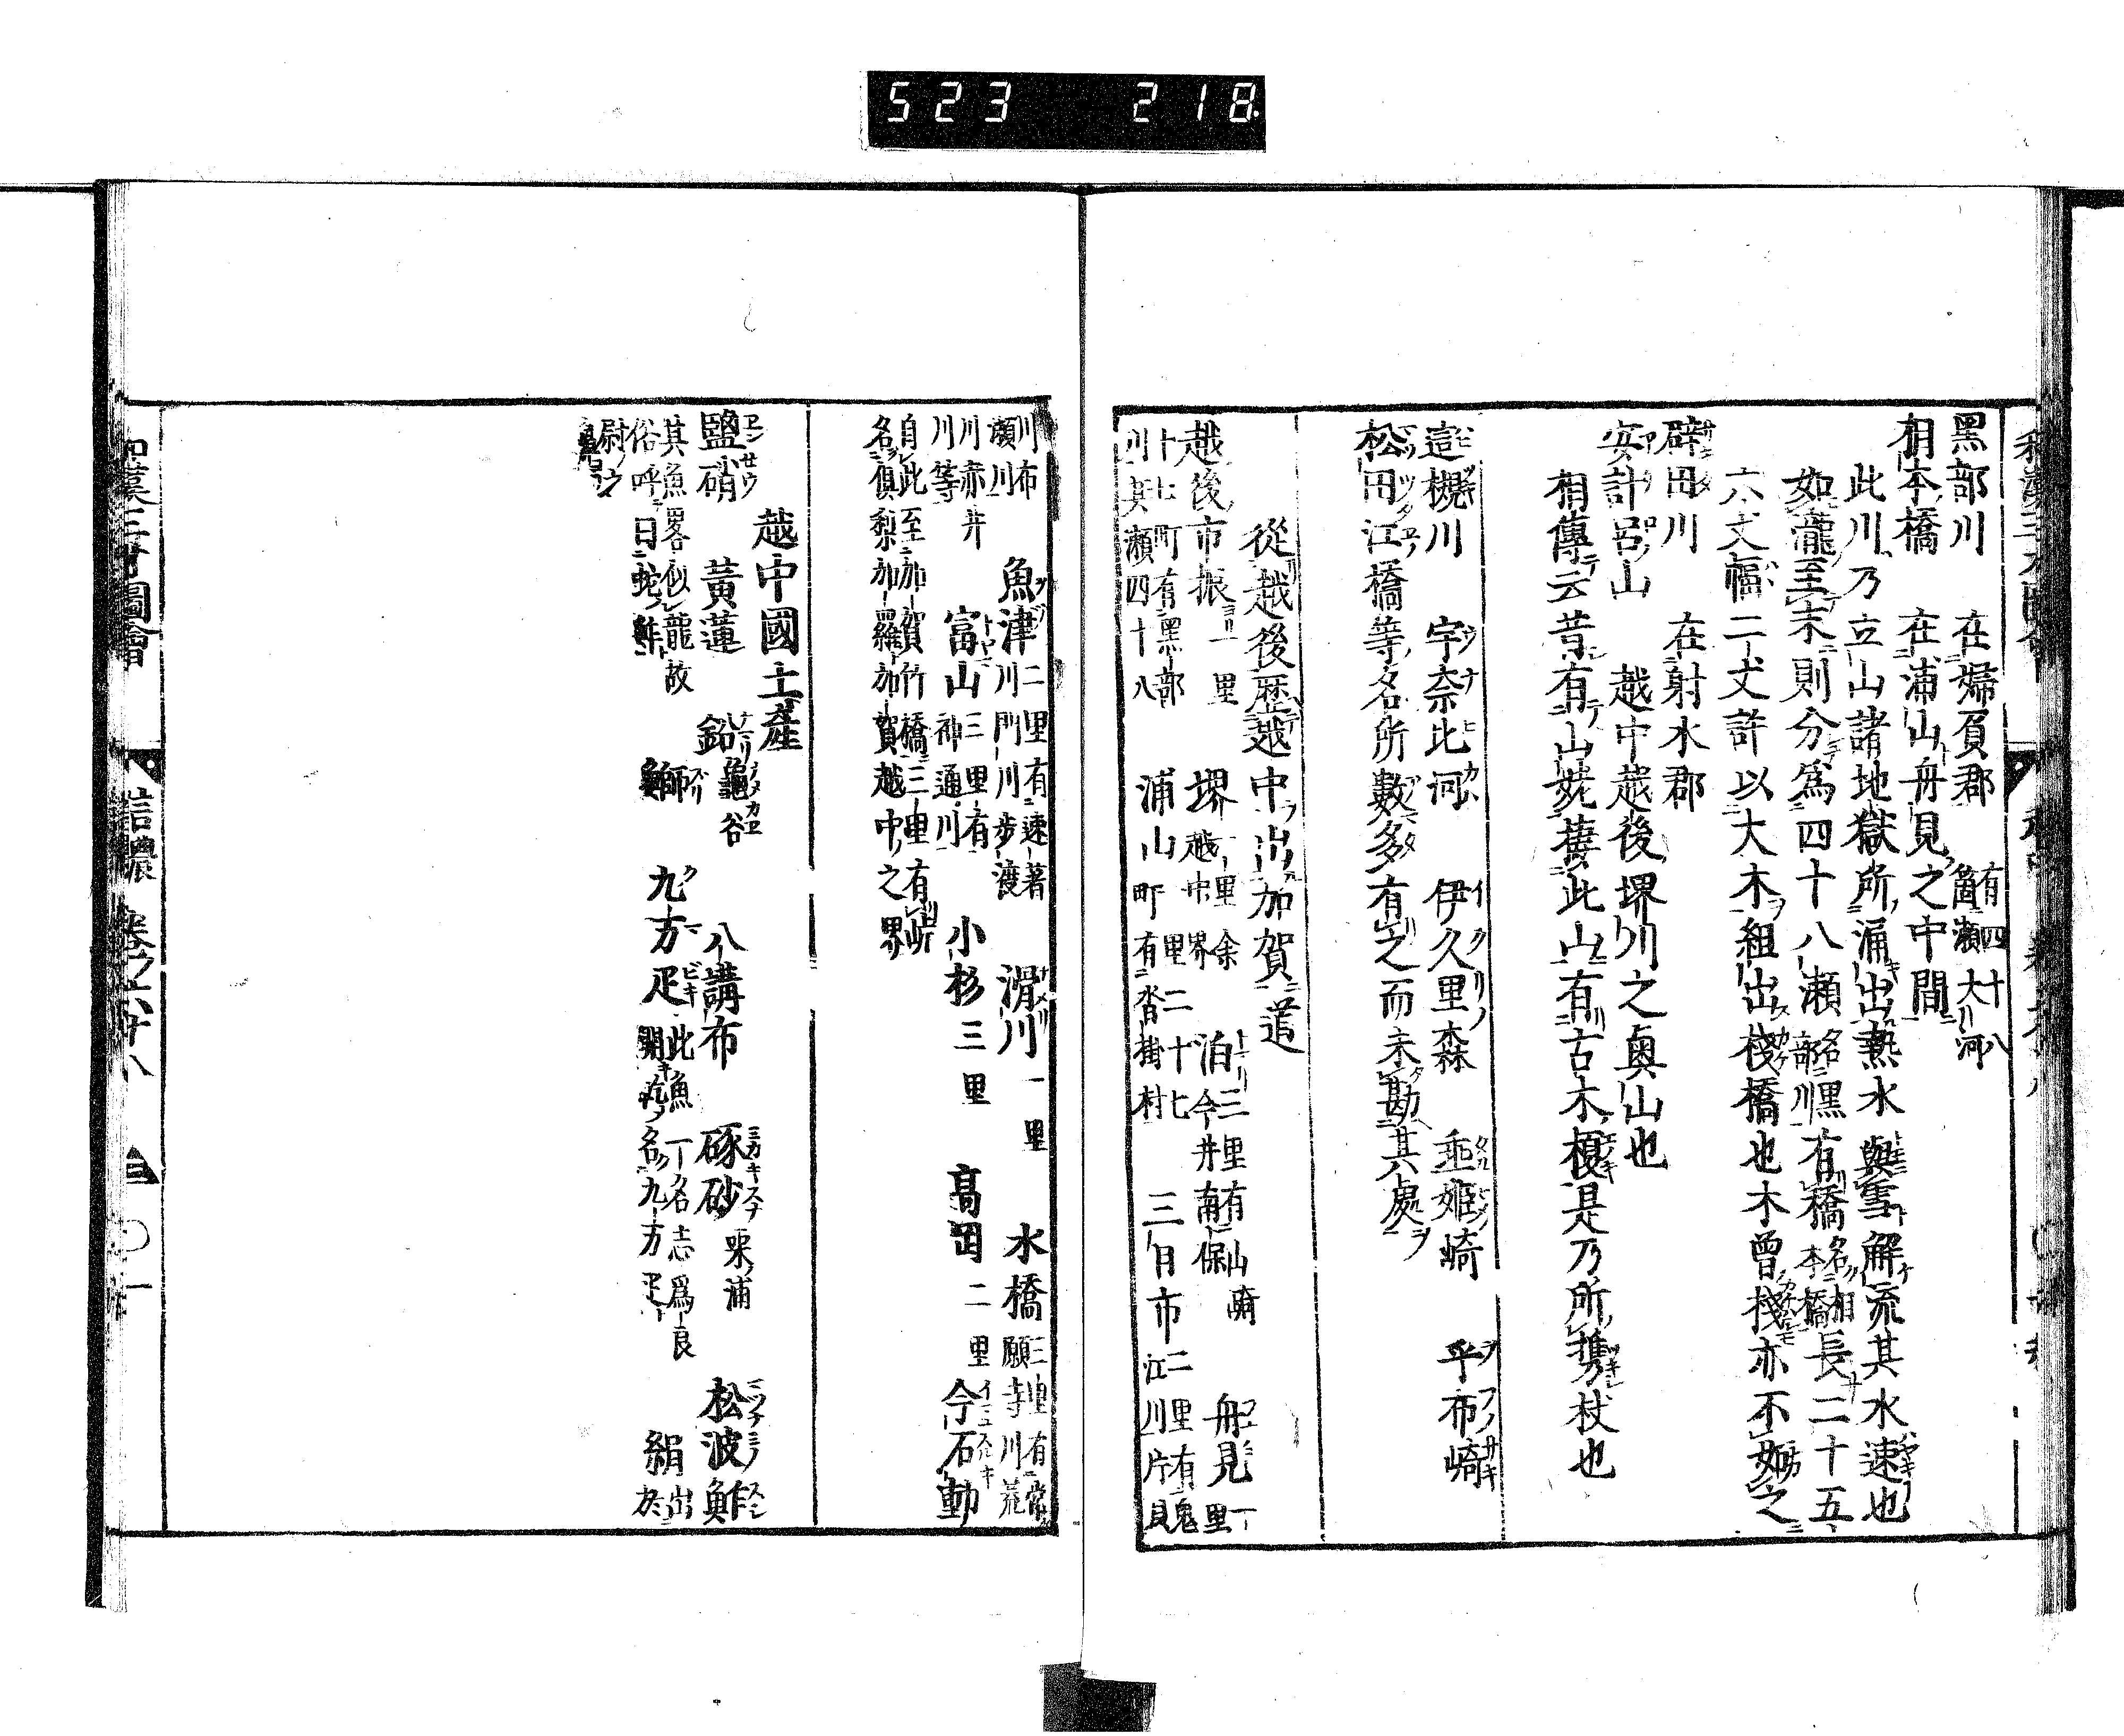 523 218
黑部川 在婦負郡 有四十八箇瀬大河
相本橋 在浦山舟見之中間
此川乃立山諸地獄所涌出熱水與雪解流其水速也
如瀧至末則分爲四十八瀬名黑部川有橋名相本橋長二十五
六丈幅二丈許以大木組出棧橋也木曾棧亦不如之
辟田川 在射水郡
安計呂山 越中越後堺川之奥山也
相傳云昔有山姥棲此山有古木榎是乃所携杖也
逵槻川 宇奈比河 伊久里森 垂姫崎 乎布崎
松田江橋等名所數多有之而未勘其處
從越後歴越中出加賀道
越後市振一里 堺一里余越中界 泊三里有山崎今井南保 舩見一里
十七町有黑部川其瀬四十八 浦山町里二十七有沓掛村 三日市二里有江川片貝
川布瀬川 魚津二里有速著川門川歩渡 滑川一里 水橋三里有願寺川荒
川赤井川等 富山三里有神通川 小杉三里 髙岡二里 今石動
自此至加賀竹橋三里有峠名倶梨加羅加賀越中之界
越中國土產
鹽硝 黃蓮 鉛龜谷 八講布 琢砂 松波鮓
其魚畧似龍故俗呼曰 鰤 九万疋此魚一名志爲良開乾名九万疋 絹出於
尉
和漢三才圖會 信濃 卷之六十八